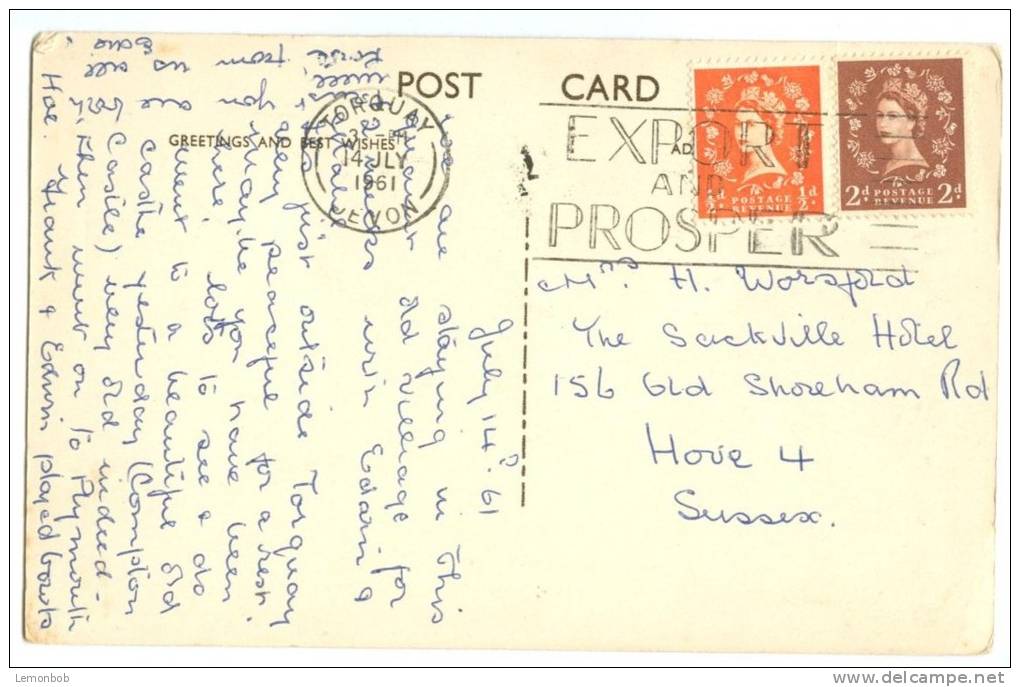 POST CARD
GREETINGS AND BEST WISHES
TORQUAY
3 - PM
14 JLY
1961
DEVON
EXPORT
AND
PROSPER
AD
½d ½d
2d POSTAGE REVENUE 2d
July 14. 61
are staying in this
quaint old village for
with Edwin &
just outside Torquay
very peaceful for a rest.
Maybe you have been
here, lots to see & do
went to a beautiful old
castle yesterday (Compton
Castle) very old indeed -
Then went on to Plymouth
Hoe. Frank & Edwin played bowls
us all
Edie
Mrs H. Worsfold
The Sackville Hotel
156 Old Shoreham Rd
Hove 4
Sussex.
Lemonbob
www.delcampe.net